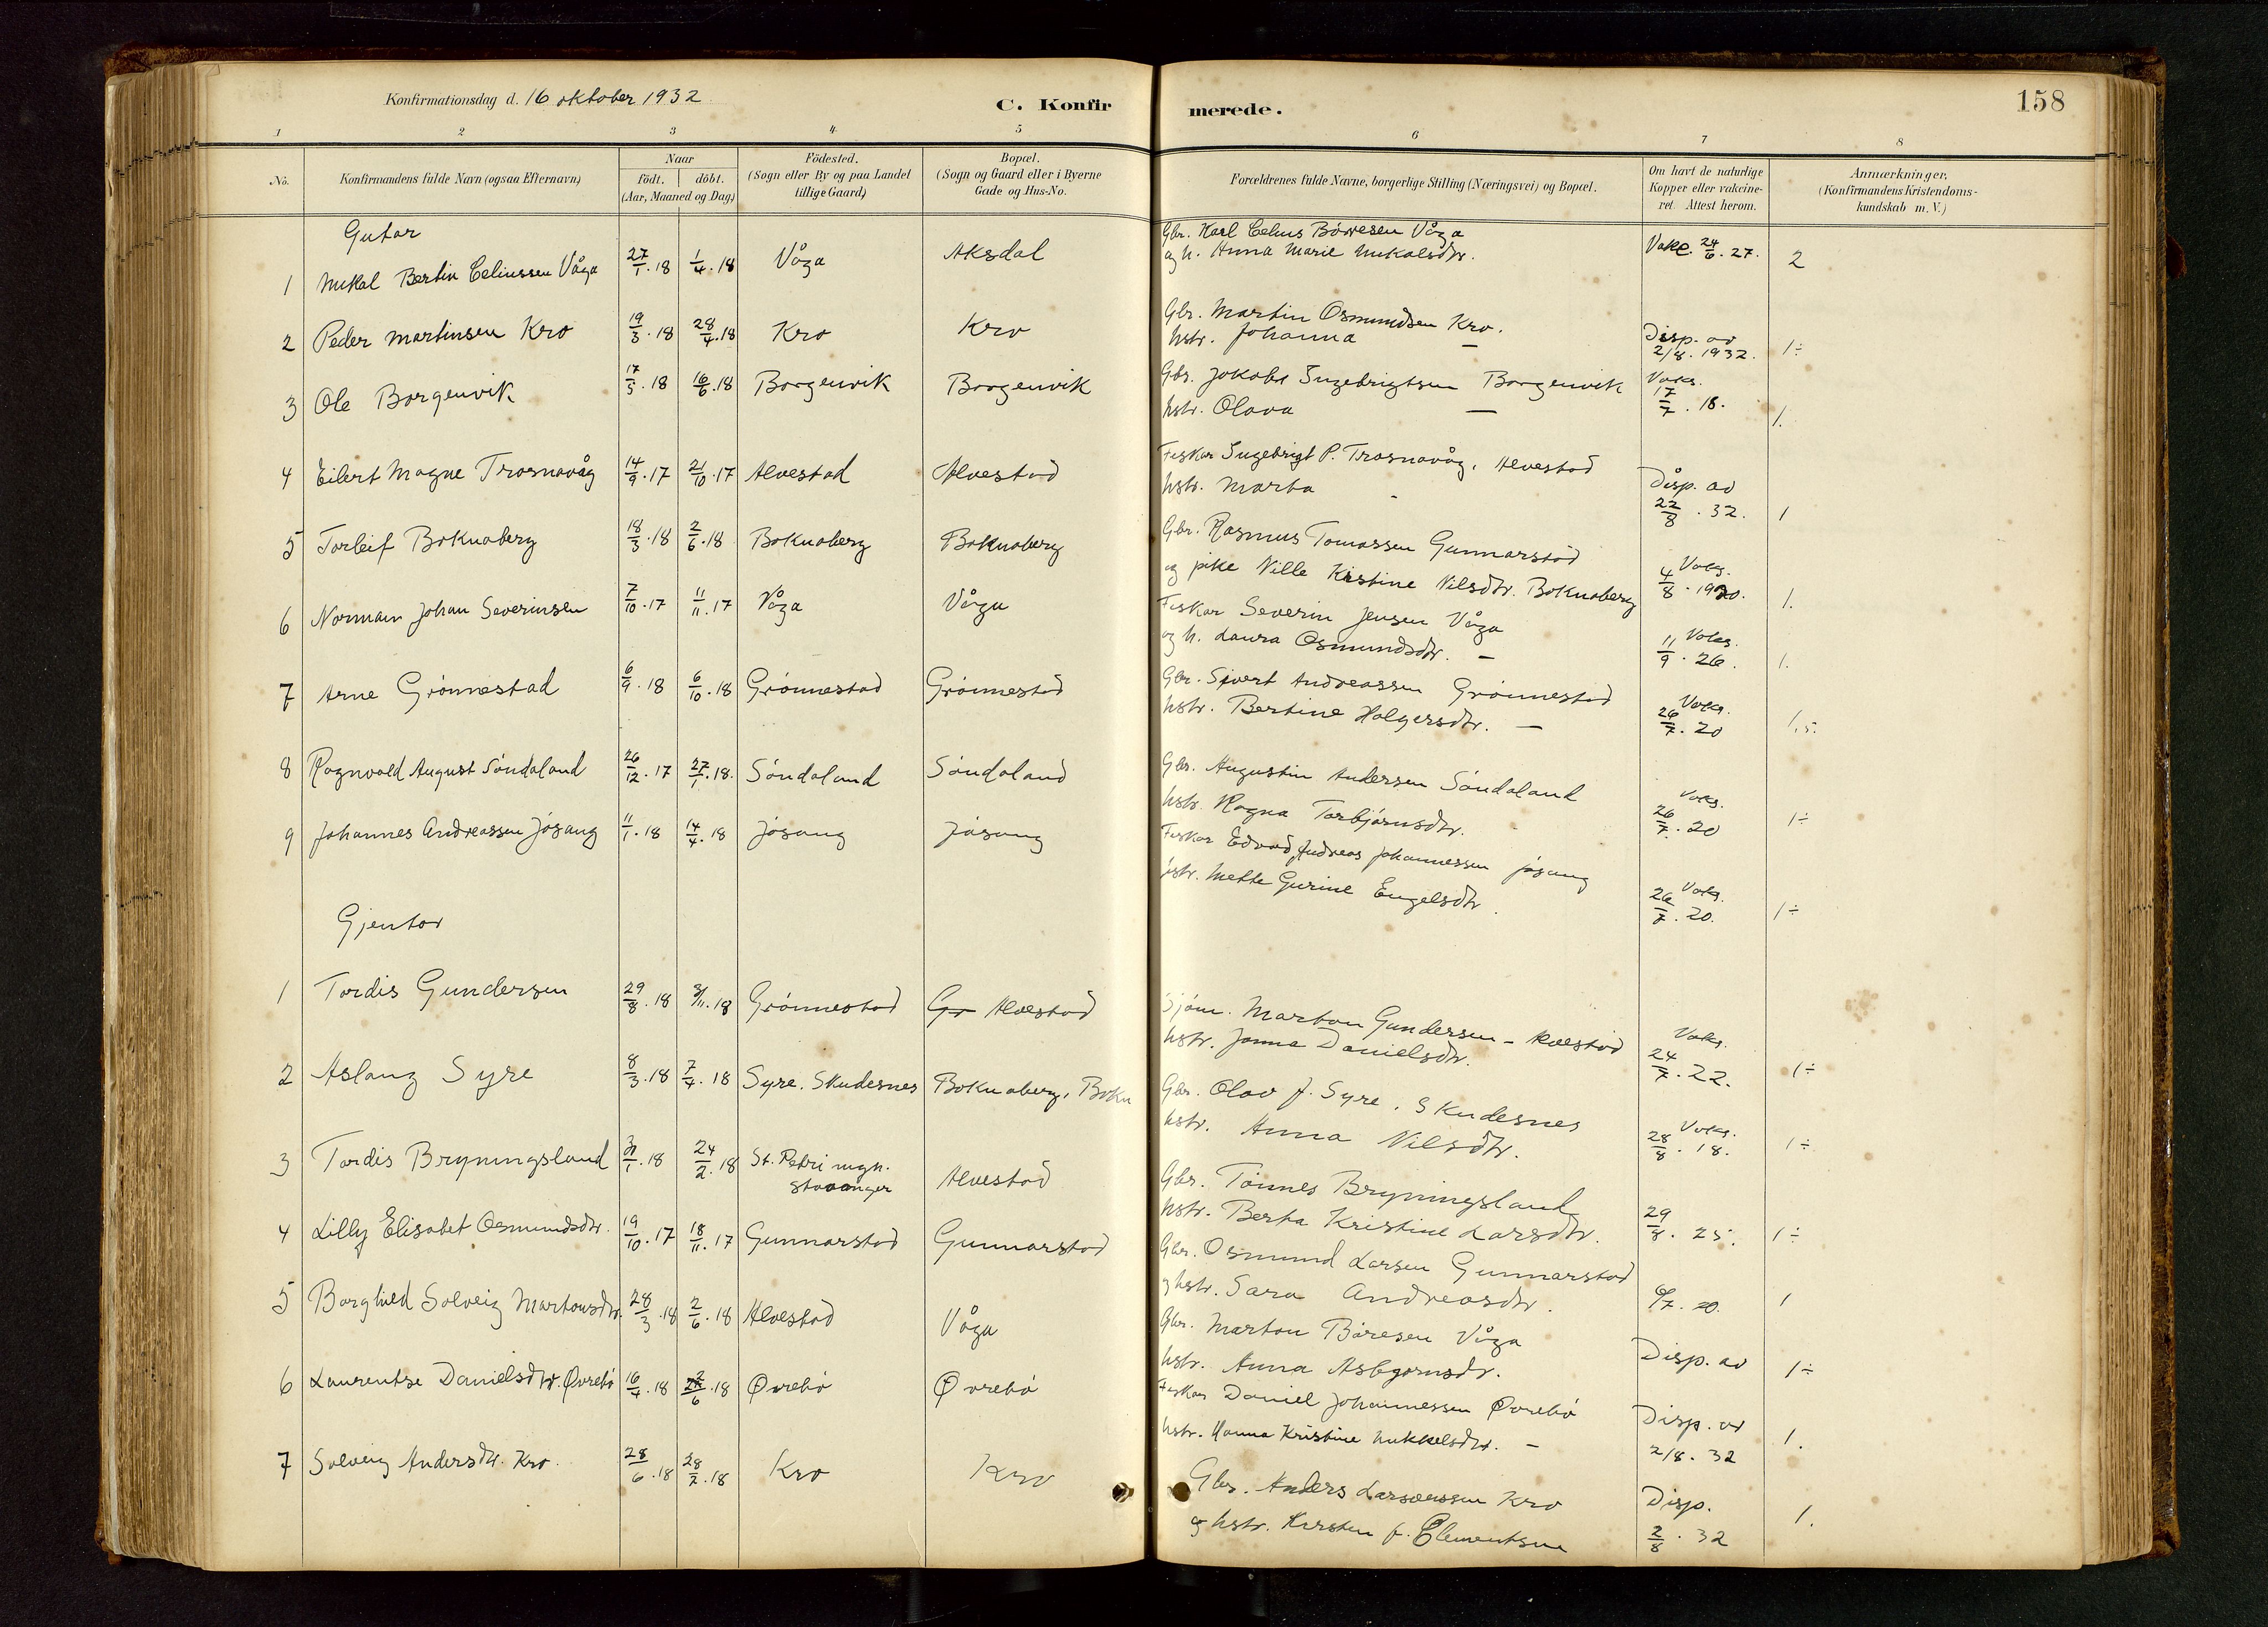 Konfirmationsdag d. 16 oktober 1932
C. Konfirmerede.
158
1 2 3 4 5 6 7 8
No.
Konfirmandens fulde Navn (ogsaa Efternavn)
Naar
födt. döbt.
(Aar, Maaned og Dag)
Födested.
(Sogn eller By og paa Landet
tillige Gaard)
Bopæl.
(Sogn og Gaard eller i Byerne
Gade og Hus-No.
Forældrenes fulde Navne, borgerlige Stilling (Næringsvei) og Bopæl.
Om havt de naturlige
Kopper eller vakcine-
ret. Attest herom.
Anmærkninger,
(Konfirmandens Kristendoms-
kundskab m. V.)
Gutar
1 Mikal Bertin Celiussen Våga 27/1.18 1/4.18 Våga Aksdal
Gbr. Karl Celius Børresen Våga
og h. Anna Marie Mikalsdtr.
Vakc. 24/6.27. 2
2 Peder Martinsen Kro 19/3.18 28/4.18 Kro Kro
Gbr. Martin Osmundsen Kro.
hstr. Johanna —
Disp. av
2/8. 1932. 1÷
3 Ole Borgenvik 17/5.18 16/6.18 Borgenvik Borgenvik
Gbr. Jakob Ingebrigtsen Borgenvik
hstr. Olava —
Vaks.
17/7.18. 1.
4 Eilert Magne Trosnavåg 14/9.17 21/10.17 Alvestad Alvestad
Fiskar Ingebrigt P. Trosnavåg, Alvestad
hstr. Marta -
Disp. av
22/8.32. 1
5 Torleif Boknaberg 18/3.18 2/6.18 Boknaberg Boknaberg
Gbr. Rasmus Tomassen Gunnarstad
og pike Nille Kristine Nilsdtr. Boknaberg
Vaks.
4/8.1920. 1.
6 Norman Johan Severinsen 7/10.17 11/11.17 Våga Våga
Fiskar Severin Jensen Våga
og h. Laura Osmundsdtr. —
Vaks.
11/9.26. 1.
7 Arne Grønnestad 6/9.18 6/10.18 Grønnestad Grønnestad
Gbr. Sivert Andreassen Grønnestad
hstr. Bertine Holgersdtr. —
Vaks.
26/7.20 1,5.
8 Ragnvald August Søndaland 26/12.17 27/1.18. Søndaland Søndaland
Gbr. Augustin Andersen Søndaland
hstr. Ragna Torbjørnsdtr.
Vaks.
26/7.20 1÷
9 Johannes Andreassen Jøsang 11/1.18 14/4.18 Jøsang Jøsang
Fiskar Edvard Andreas Johannessen Jøsang
hstr. Mette Gurine Engelsdtr.
Vaks.
26/7.20. 1÷
Gjentor
1 Tordis Gundersen 29/8.18 3/11.18 Grønnestad Gr Alvestad
Sjøm. Marton Gundersen - Alvestad
hstr. Janna Danielsdtr.
Vaks.
24/7.22. 1÷
2 Aslaug Syre 8/3.18 7/4.18 Syre. Skudesnes Boknaberg, Bokn
Gbr. Olav J. Syre, Skudesnes
hstr. Anna Nilsdtr.
Vaks.
28/8.18. 1÷
3 Tordis Bryningsland 31/1.18 24/2.18 St. Petri mgh.
Stavanger Alvestad
Gbr. Tønnes Bryningsland
hstr. Berta Kristine Larsdtr.
29/8.25. 1÷
4 Lilly Elisabet Osmundsdtr. 19/10.17 18/11.17 Gunnarstad Gunnarstad
Gbr. Osmund Larsen Gunnarstad
og hstr. Sara Andreasdtr.
20. 1
5 Borghild Solveig Martonsdtr. 28/3.18 2/6.18 Alvestad Våga
Gbr. Marton Børesen Våga
hstr. Anna Asbjørnsdtr.
Disp. av 1÷
6 Laurentze Danielsdtr. Øvrebø 16/4.18 2/6.18 Øvrebø Øvrebø
Fiskar Daniel Johannessen Øvrebø
hstr. Hanna Kristine Mikkelsdtr. —
Disp. av
2/8.32 1.
7 Solveig Andersdtr. Kro. 28/6.18 28/7.18 Kro Kro
Gbr. Anders Larsenssen Kro
og hstr. Kirsten f. Clementsen
Disp.
2/8.32 1.